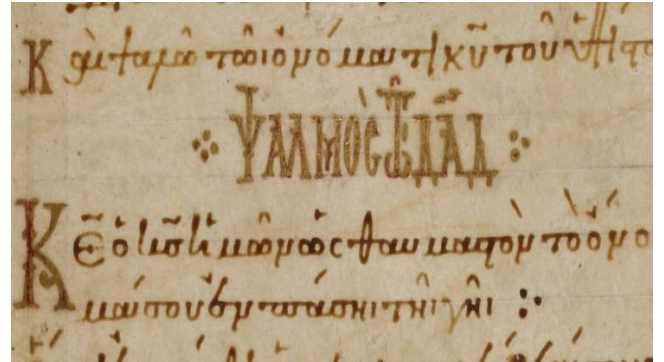 Καὶ ψαλῶ τῶι ὀνόματι κ̅υ̅ τοῦ ὑψίστο
ψαλμὸς τῶ δ̅α̅δ̅
Κ̅Ε̅ ὁ κ̅ς̅ ἡμῶν ὡς θαυμαστὸν τὸ ὄνο
μά σου ἐν πάσηι τῆι γῆι :·